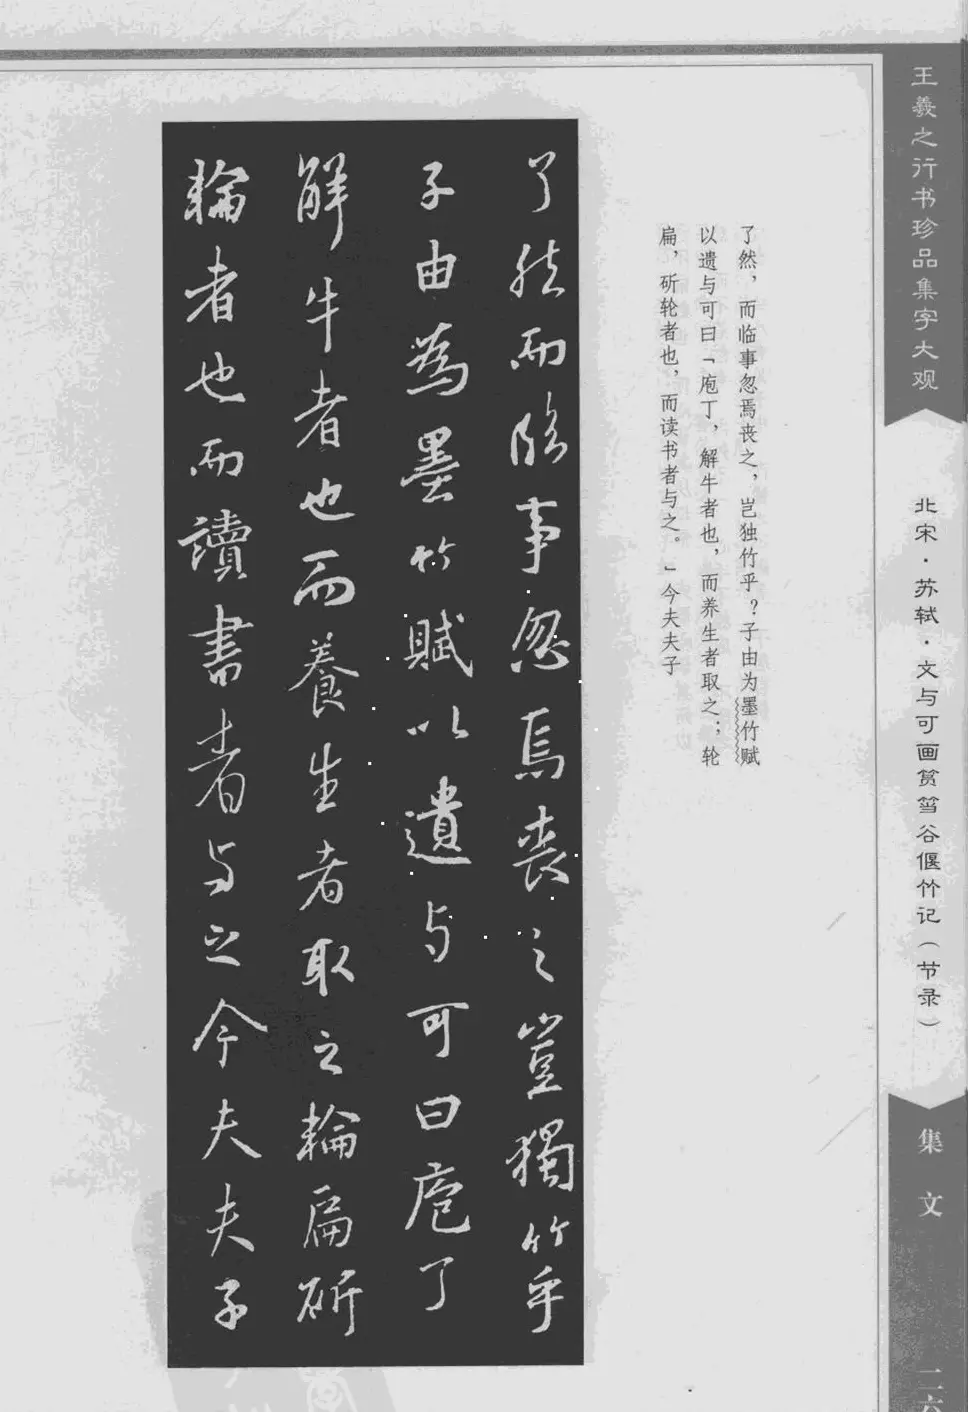 王羲之行书珍品集字大观
北宋·苏轼·文与可画筼筜谷偃竹记（节录）
集文
二六
了然，而临事忽焉丧之，岂独竹乎？子由为墨竹赋
以遗与可曰「庖丁，解牛者也，而养生者取之；轮
扁，斫轮者也，而读书者与之。」今夫夫子
了然而臨事忽焉喪之豈獨竹乎
子由為墨竹賦以遺与可曰庖丁
解牛者也而養生者取之輪扁斫
輪者也而讀書者与之今夫夫子